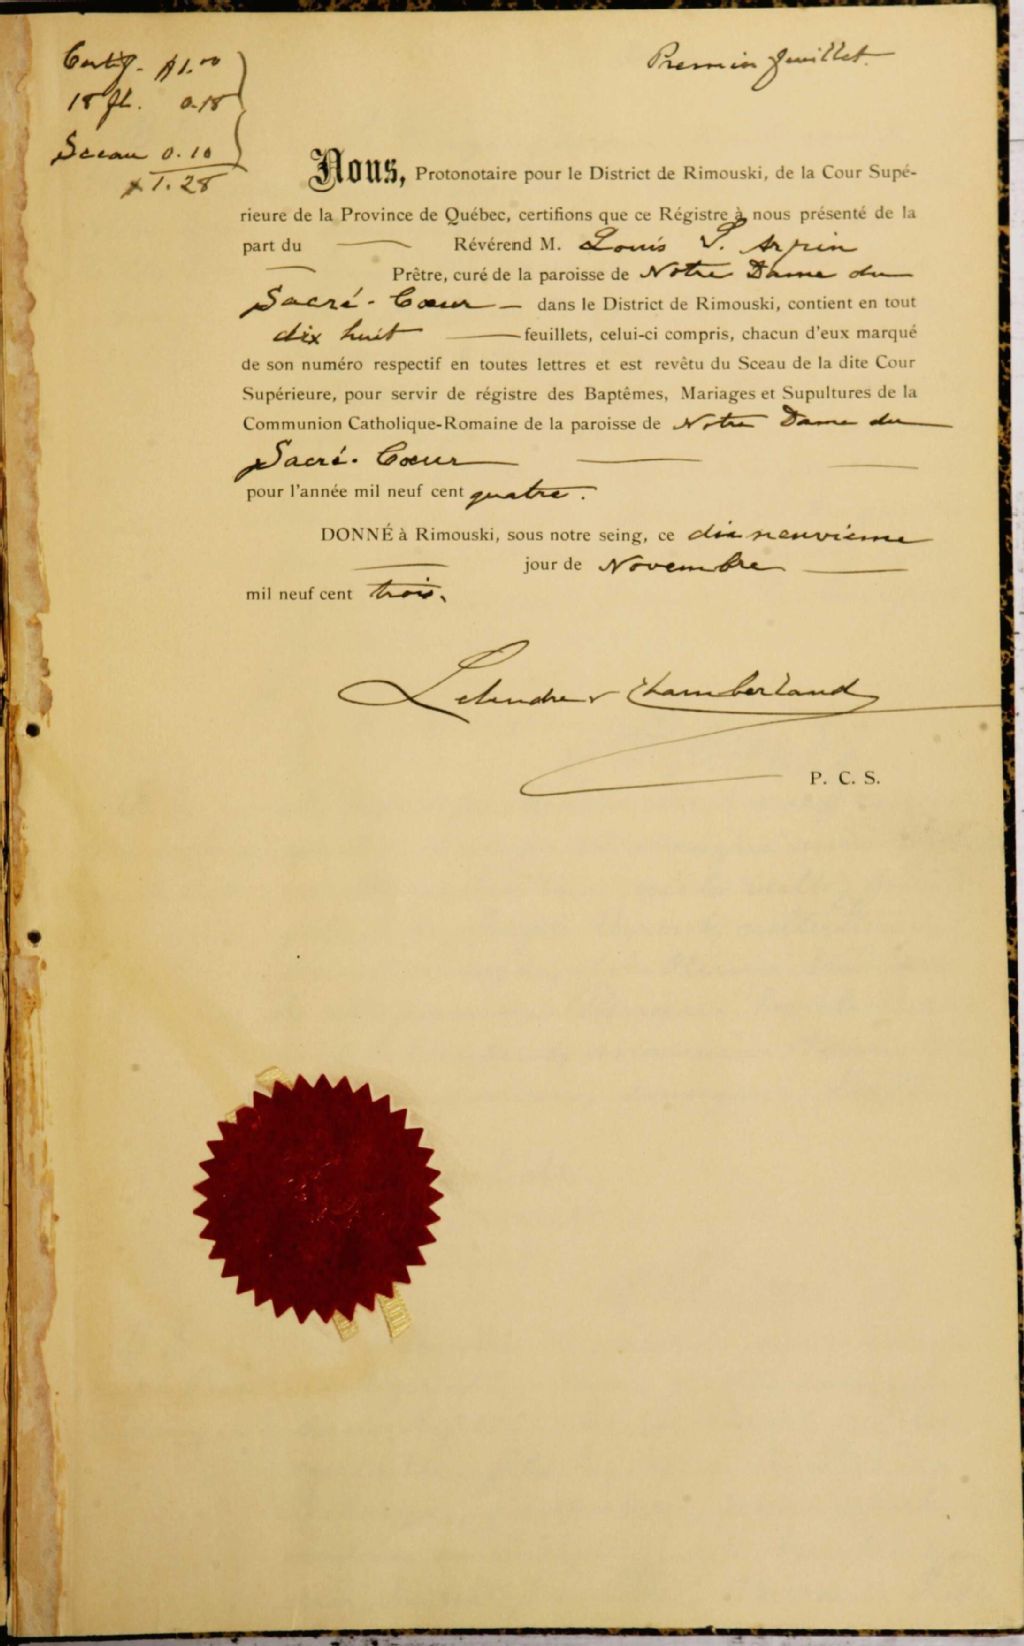 Certif. $1.00
18 fl. 0.18
Sceau 0.10
1.28
Premier feuillet.
Nous, Protonotaire pour le District de Rimouski, de la Cour Supé-
rieure de la Province de Québec, certifions que ce Régistre à nous présenté de la
part du Révérend M. Louis S. Arpin
Prêtre, curé de la paroisse de Notre Dame du
Sacré-Cœur — dans le District de Rimouski, contient en tout
dix huit feuillets, celui-ci compris, chacun d'eux marqué
de son numéro respectif en toutes lettres et est revêtu du Sceau de la dite Cour
Supérieure, pour servir de régistre des Baptêmes, Mariages et Supultures de la
Communion Catholique-Romaine de la paroisse de Notre Dame du
Sacré-Cœur
pour l'année mil neuf cent quatre.
DONNÉ à Rimouski, sous notre seing, ce dix neuvième
jour de Novembre
mil neuf cent trois.
Letendre & Chamberland
P. C. S.